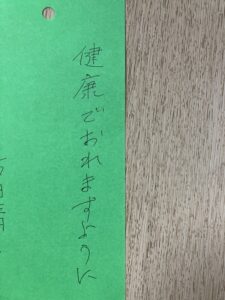 健康でおれますように